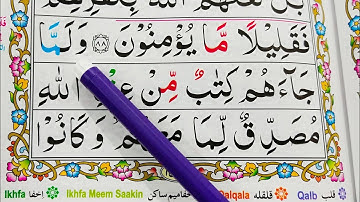 بَلْ لَّعَنَهُمُ اللّٰهُ بِكُفْرِهِمْ
فَقَلِيْلًا مَّا يُؤْمِنُوْنَ ﴿٨٨﴾ وَلَمَّا
جَآءَهُمْ كِتٰبٌ مِّنْ عِنْدِ اللّٰهِ
مُصَدِّقٌ لِّمَا مَعَهُمْ وَكَانُوْا
Ikhfa اخفا Ikhfa Meem Saakin اخفا میم ساکن Qalqala قلقله Qalb قلب